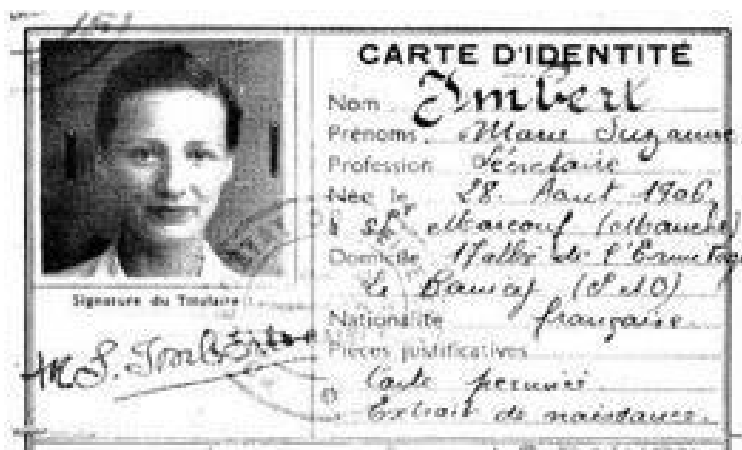 151
CARTE D'IDENTITÉ
Nom Imbert
Prénoms Marie Suzanne
Profession Secrétaire
Née le 28 Aout 1906
à St Marcouf (Manche)
Domicile 17 allée de l'Ermitage
Le (S et O)
Nationalité française
Pièces justificatives
Carte périmée
Extrait de naissance.
Signature du Titulaire
M.S. Imbert